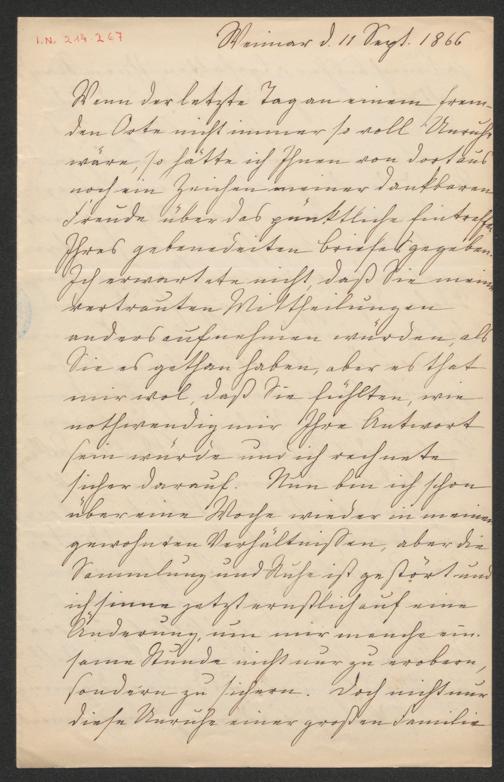 I.N. 214.267
Weimar d. 11 Sept. 1866
Wenn der letzte Tag an einem frem-
den Orte nicht immer so voll Unruhe
wäre, so hätte ich Ihnen von dort aus
noch ein Zeichen meiner dankbaren
Freude über das pünktliche Eintreffen
Ihres gebenedeiten Briefes gegeben.
Ich erwartete nicht, daß Sie meine
vertrauten Mittheilungen
anders aufnehmen würden, als
Sie es gethan haben, aber es that
mir wol, daß Sie fühlten, wie
nothwendig mir Ihre Antwort
sein würde und ich rechnete
sicher darauf. Nun bin ich schon
über eine Woche wieder in meinen
gewohnten Verhältnißen, aber die
Sammlung und Ruhe ist gestört und
ich sinne jetzt ernstlich auf eine
Änderung, um mir manche ein-
same Stunde nicht nur zu erobern,
sondern zu sichern. Doch nicht nur
diese Unruhe einer großen Familie